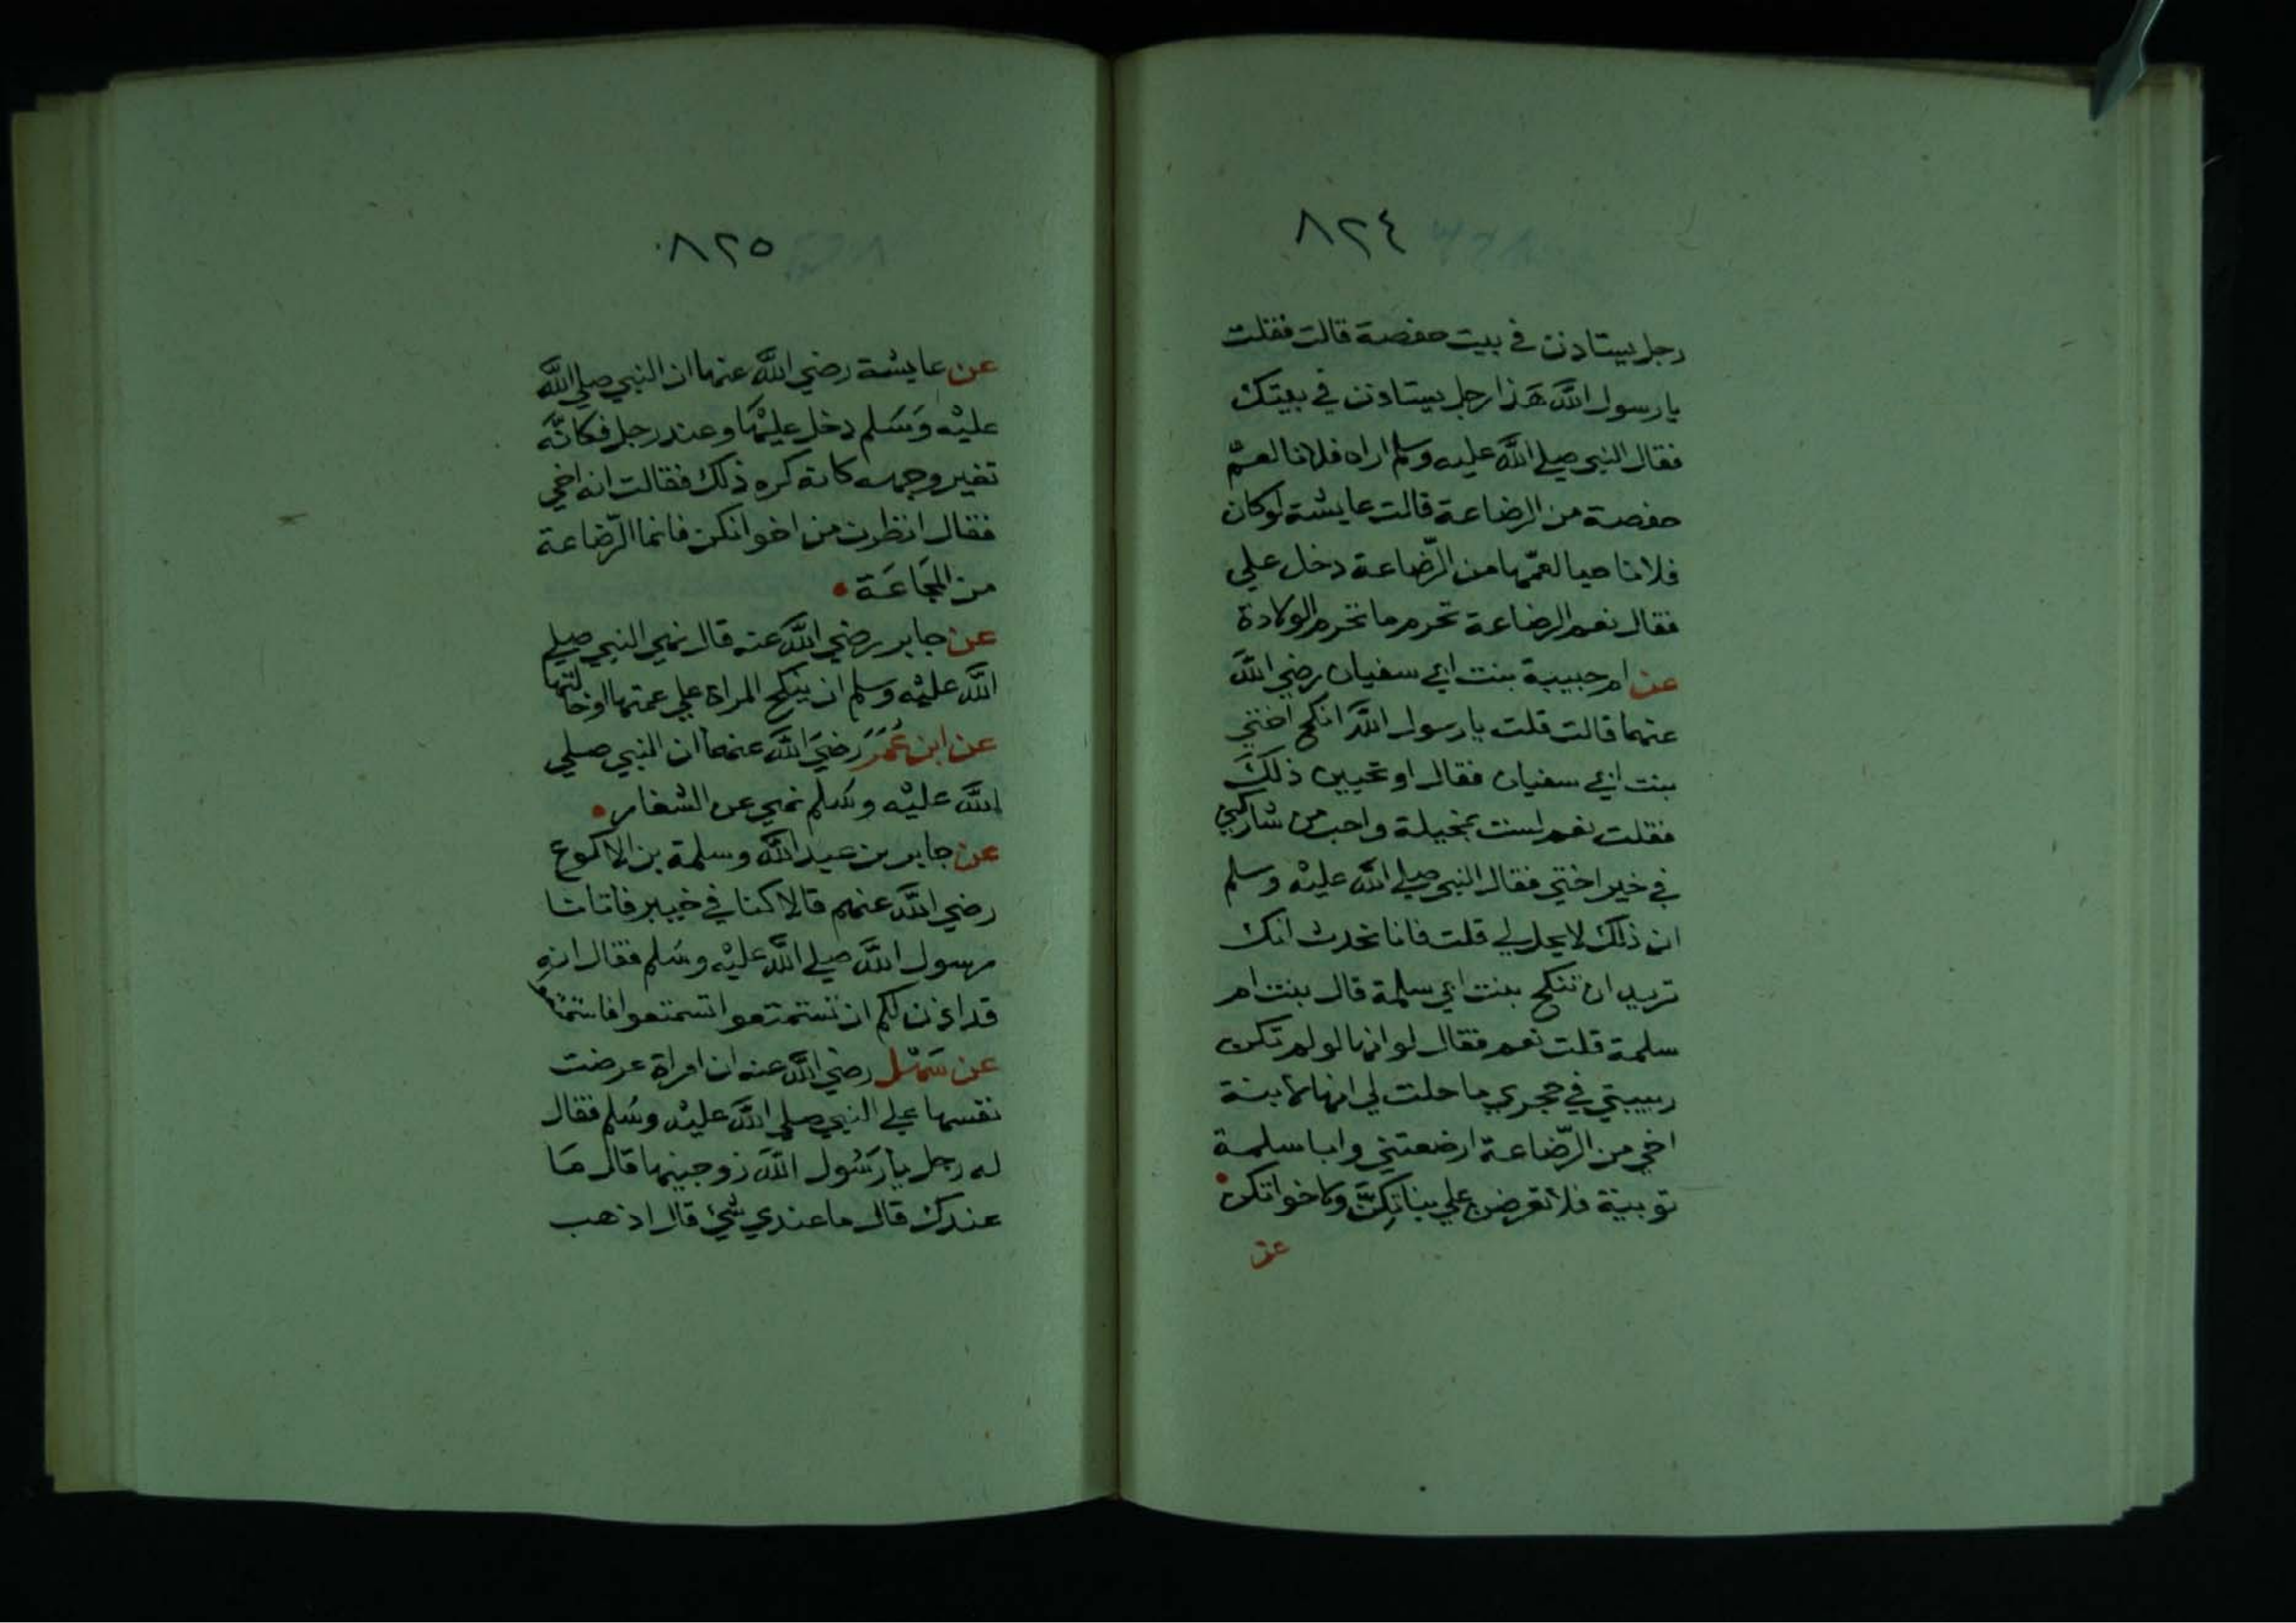 ٨٢٤
رجل يستاذن في بيت حفصة قالت فقلت
يا رسول الله هذا رجل يستاذن في بيتك
فقال النبي صلي الله عليه وسلم اراه فلانا لعم
حفصة من الرضاعة قالت عايشة لو كان
فلانا حيا لعمها من الرضاعة دخل علي
فقال نعم الرضاعة تحرم ما تحرم الولادة
عن ام حبيبة بنت ابي سفيان رضي الله
عنهما قالت قلت يا رسول الله انكح اختي
بنت ابي سفيان فقال او تحبين ذلك
فقلت نعم لست بمخيلة واحب من شاركني
في خير اختي فقال النبي صلي الله عليه وسلم
ان ذلك لا يحل لي قلت فانا نحدث انك
تريد ان تنكح بنت ابي سلمة قال بنت ام
سلمة قلت نعم فقال لو انها لو لم تكن
ربيبتي في حجري ما حلت لي انها لابنة
اخي من الرضاعة ارضعتني وابا سلمة
ثويبة فلا تعرضن علي بناتكن ولا خواتكن
عن
٨٢٥
عن عايشة رضي الله عنها ان النبي صلي الله
عليه وسلم دخل عليها وعند رجل فكانه
تغير وجهه كانه كره ذلك فقالت انه اخي
فقال انظرن من اخوانكن فانما الرضاعة
من المجاعة
عن جابر رضي الله عنه قال نهي النبي صلي
الله عليه وسلم ان ينكح المراة علي عمتها او خالتها
عن ابن عمر رضي الله عنهما ان النبي صلي
الله عليه وسلم نهي عن الشغار
عن جابر بن عبد الله وسلمة بن الاكوع
رضي الله عنهم قالا كنا في خيبر فاتانا
رسول الله صلي الله عليه وسلم فقال انه
قد اذن لكم ان تستمتعوا تستمتعوا فاستمتعوا
عن سهل رضي الله عنه ان امراة عرضت
نفسها علي النبي صلي الله عليه وسلم فقال
له رجل يا رسول الله زوجنيها قال ما
عندك قال ما عندي شيء قال اذهب